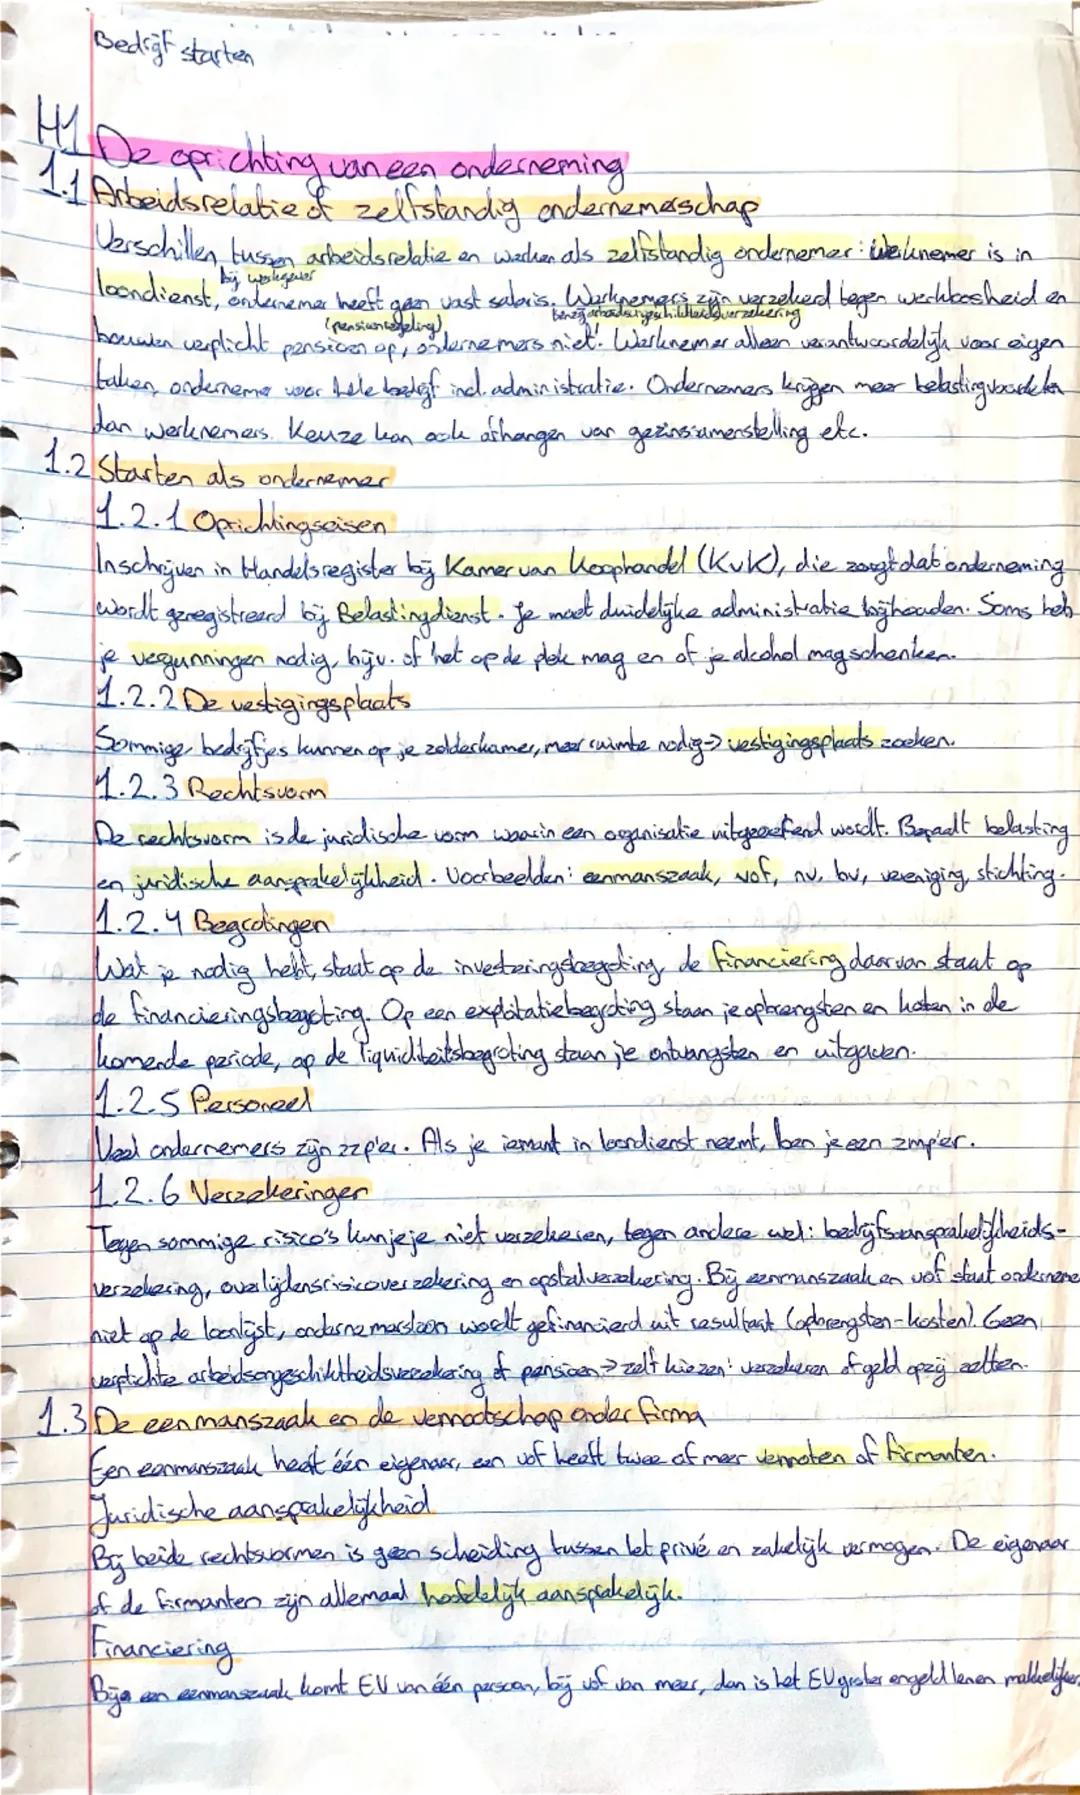 Bedrijf starten
H1 De oprichting van een onderneming
1.1 Arbeidsrelatie of zelfstandig ondernemerschap
Verschillen tussen arbeidsrelatie en werken als zelfstandig ondernemer: werknemer is in
bij werkgever
loondienst, ondernemer heeft geen vast salaris. Werknemers zijn verzekerd tegen werkloosheid en
(pensioenregeling) en arbeidsongeschiktheidsverzekering
bouwen verplicht pensioen op, ondernemers niet! Werknemer alleen verantwoordelijk voor eigen
taken, ondernemer voor hele bedrijf incl. administratie. Ondernemers krijgen meer belastingvoordelen
dan werknemers. Keuze kan ook afhangen van gezinssamenstelling etc.
1.2 Starten als ondernemer
1.2.1 Oprichtingseisen
Inschrijven in Handelsregister bij Kamer van Koophandel (KvK), die zorgt dat onderneming
wordt geregistreerd bij Belastingdienst. Je moet duidelijke administratie bijhouden. Soms heb
je vergunningen nodig, bijv. of het op de plek mag en of je alcohol mag schenken.
1.2.2 De vestigingsplaats
Sommige bedrijfjes kunnen op je zolderkamer, meer ruimte nodig → vestigingsplaats zoeken.
1.2.3 Rechtsvorm
De rechtsvorm is de juridische vorm waarin een organisatie uitgeoefend wordt. Bepaalt belasting
en juridische aansprakelijkheid. Voorbeelden: eenmanszaak, vof, nv, bv, vereniging, stichting.
1.2.4 Begrotingen
Wat je nodig hebt, staat op de investeringsbegroting, de financiering daarvan staat op
de financieringsbegroting. Op een exploitatiebegroting staan je opbrengsten en kosten in de
komende periode, op de liquiditeitsbegroting staan je ontvangsten en uitgaven.
1.2.5 Personeel
Veel ondernemers zijn zzp'er. Als je iemant in loondienst neemt, ben je een zmp'er.
1.2.6 Verzekeringen
Tegen sommige risico's kun je je niet verzekeren, tegen andere wel: bedrijfsaansprakelijkheids-
verzekering, overlijdensrisicoverzekering en opstalverzekering. Bij eenmanszaak en vof staat ondernemer
niet op de loonlijst, ondernemersloon wordt gefinancierd uit resultaat (opbrengsten-kosten). Geen
verplichte arbeidsongeschiktheidsverzekering of pensioen → zelf kiezen: verzekeren of geld opzij zetten.
1.3 De eenmanszaak en de vennootschap onder firma
Een eenmanszaak heeft één eigenaar, een vof heeft twee of meer vennoten of firmanten.
Juridische aansprakelijkheid
Bij beide rechtsvormen is geen scheiding tussen het privé en zakelijk vermogen. De eigenaar
of de firmanten zijn allemaal hoofdelijk aansprakelijk.
Financiering
Bij een eenmanszaak komt EV van één persoon, bij vof van meer, dan is het EV groter en geld lenen makkelijker.